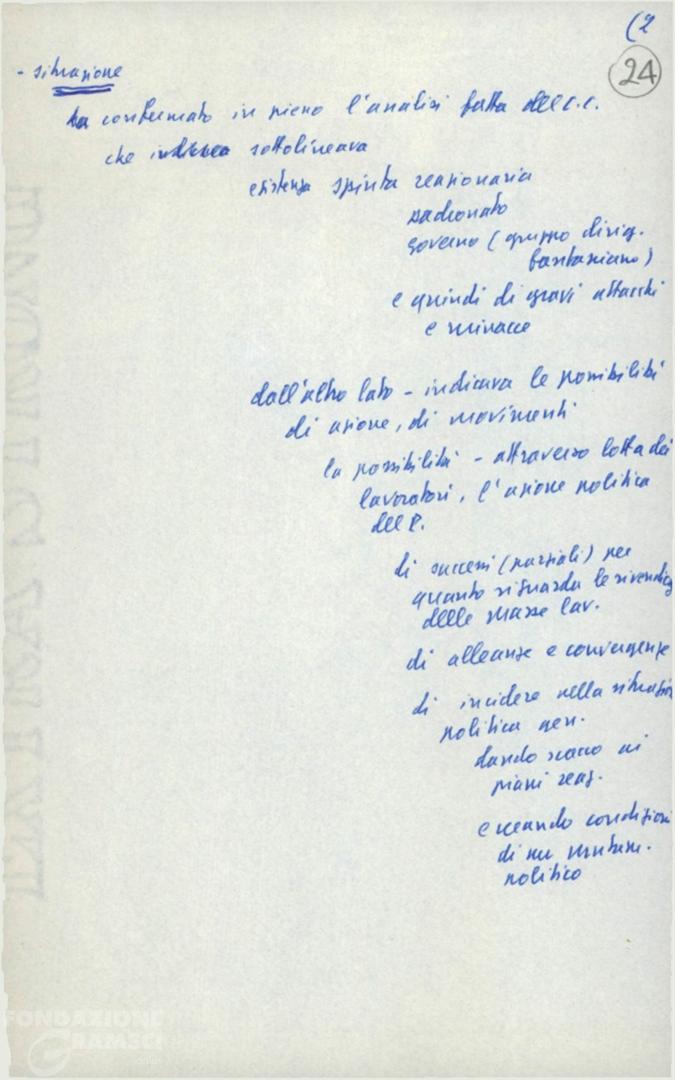 (2
24
- situazione
ha confermato in pieno l'analisi fatta del C.C.
che indicava sottolineava
esistenza spinta reazionaria
padronato
governo (gruppo dirig.
fanfaniano)
e quindi di gravi attacchi
e minacce
dall'altro lato - indicava le possibilità
di azione, di movimenti
la possibilità - attraverso lotta dei
lavoratori, l'azione politica
del P.
di successi (parziali) per
quanto riguarda le rivendic
delle masse lav.
di alleanze e convergenze
di incidere nella situazion
politica gen.
dando scacco ai
piani reaz.
creando condizioni
di un mutam.
politico
FONDAZIONE
GRAMSCI